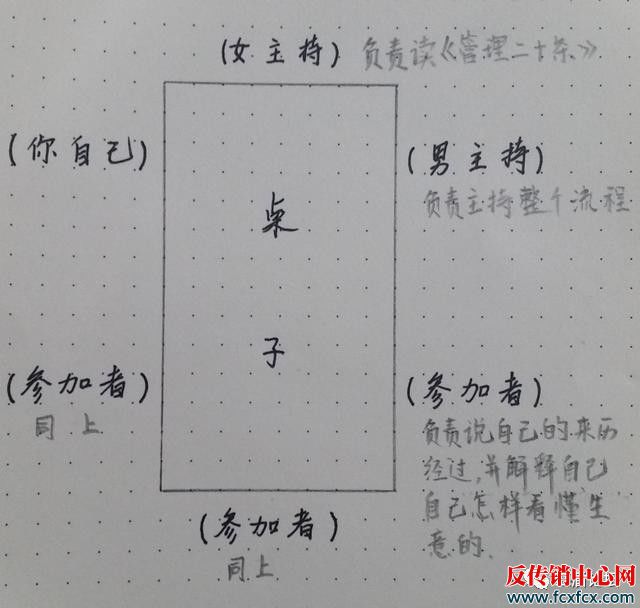 (女主持) 负责读《管理二十条》
(你自己)
(男主持)
负责主持整个流程
桌
子
(参加者)
同上
(参加者)
负责说自己的来历
经过,并解释自己
自己怎样看懂生
意的.
(参加者)
同上
反传销中心网
www.fcxfcx.com